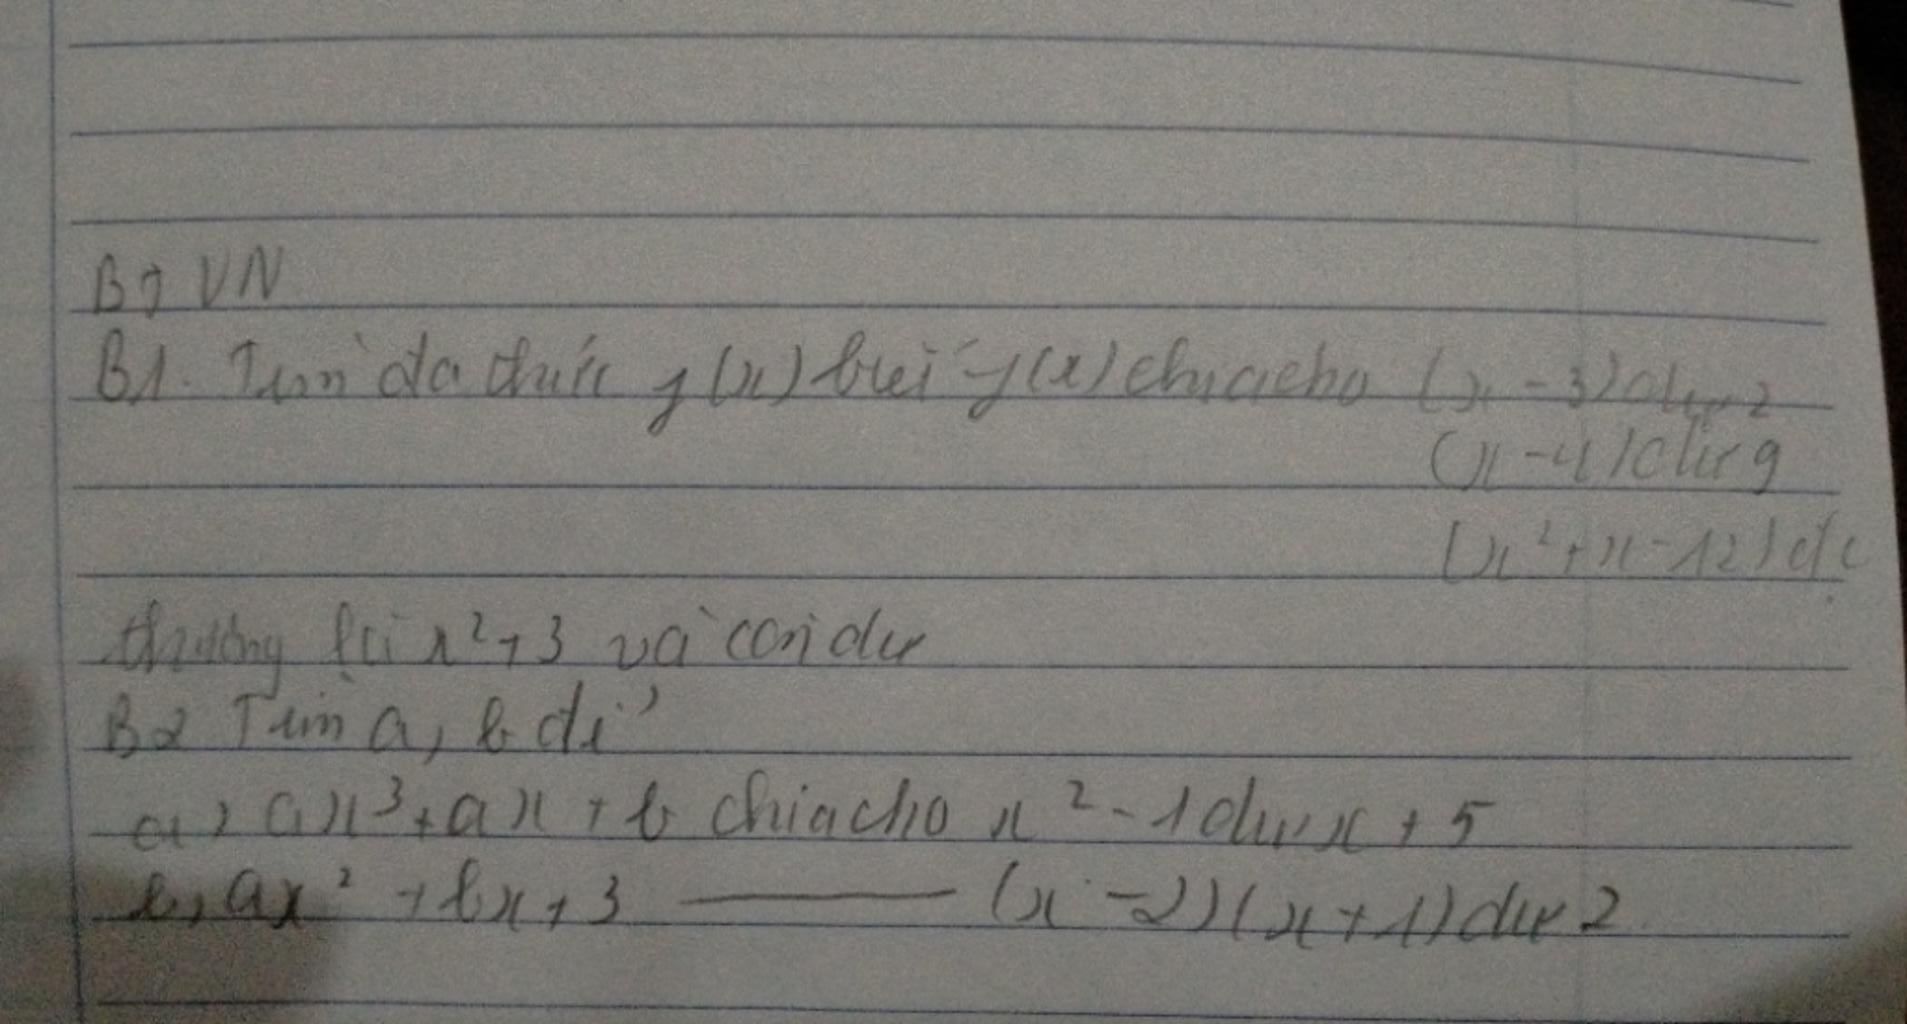 BTVN
B1. Tìm đa thức f(x) biết f(x) chia cho (x - 3) dư 2
(x - 4) dư 9
(x² + x - 12) đc
thương là x² + 3 và còn dư
B2 Tìm a, b để
a, ax³ + ax + b chia cho x² - 1 dư x + 5
b, ax² + bx + 3 —— (x - 2)(x + 1) dư 2